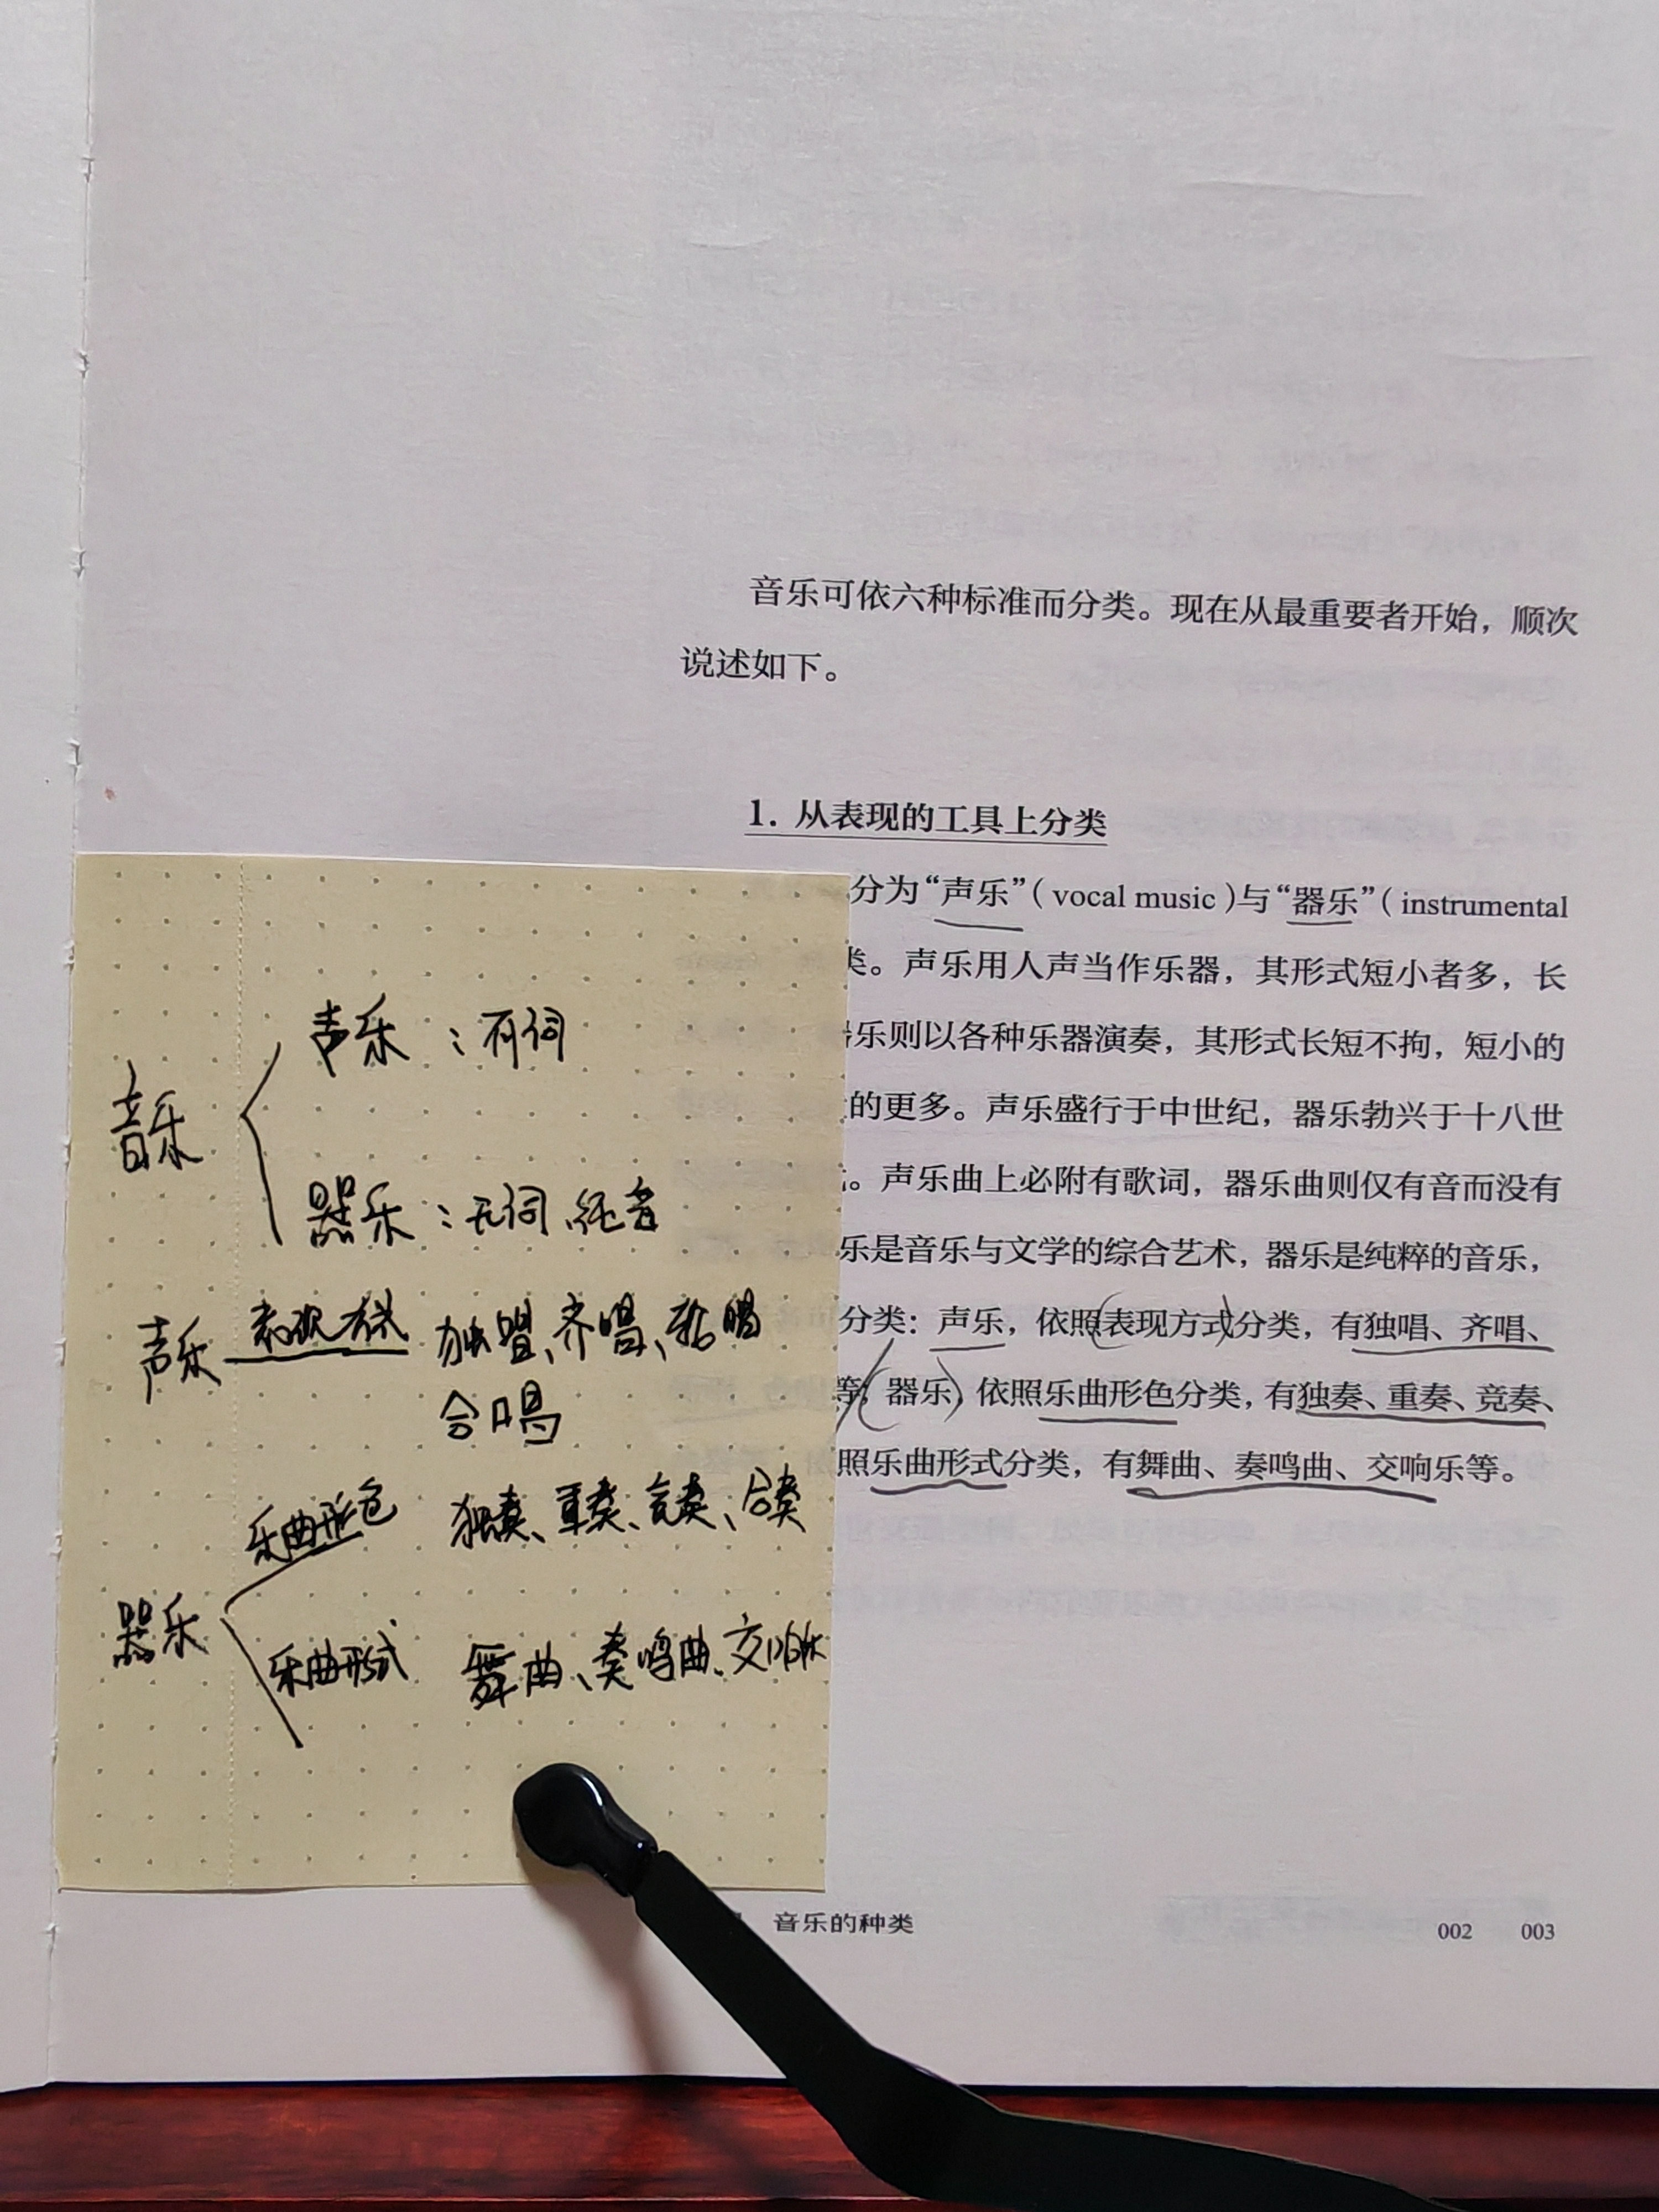 音乐可依六种标准而分类。现在从最重要者开始，顺次
说述如下。
1. 从表现的工具上分类
分为“声乐”（vocal music）与“器乐”（instrumental
类。声乐用人声当作乐器，其形式短小者多，长
乐则以各种乐器演奏，其形式长短不拘，短小的
的更多。声乐盛行于中世纪，器乐勃兴于十八世
。声乐曲上必附有歌词，器乐曲则仅有音而没有
乐是音乐与文学的综合艺术，器乐是纯粹的音乐，
分类：声乐，依照表现方式分类，有独唱、齐唱、
等；器乐，依照乐曲形色分类，有独奏、重奏、竞奏、
照乐曲形式分类，有舞曲、奏鸣曲、交响乐等。
音乐
声乐：有词
器乐：无词、纯音
声乐 表现方式 独唱、齐唱、轮唱
合唱
器乐
乐曲形色 独奏、重奏、竞奏、合奏
乐曲形式 舞曲、奏鸣曲、交响乐
音乐的种类
002 003